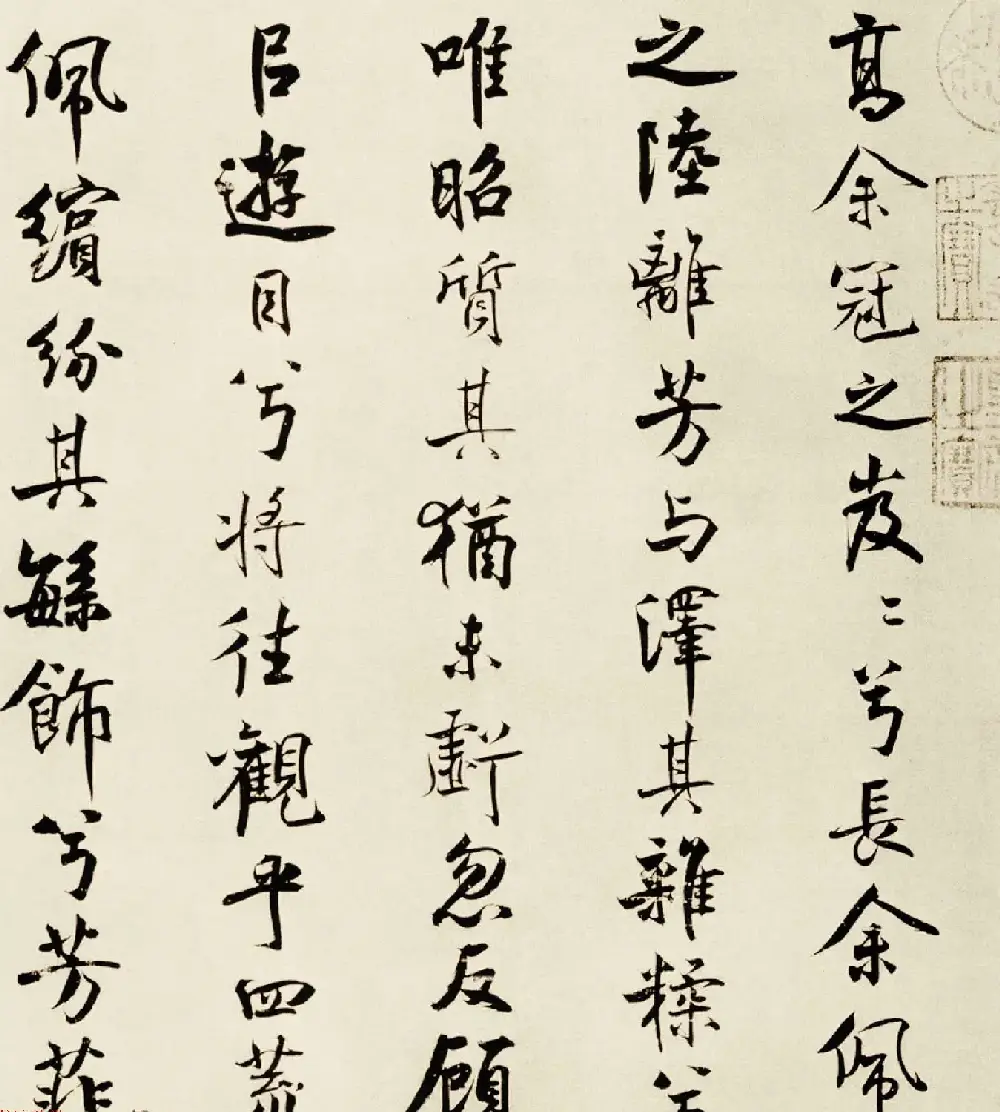 高余冠之岌〻兮長余佩
之陸離芳与澤其雜糅兮
唯昭質其猶未虧忽反顧
㠯遊目兮将往觀乎四荒
佩繽紛其繁飾兮芳菲